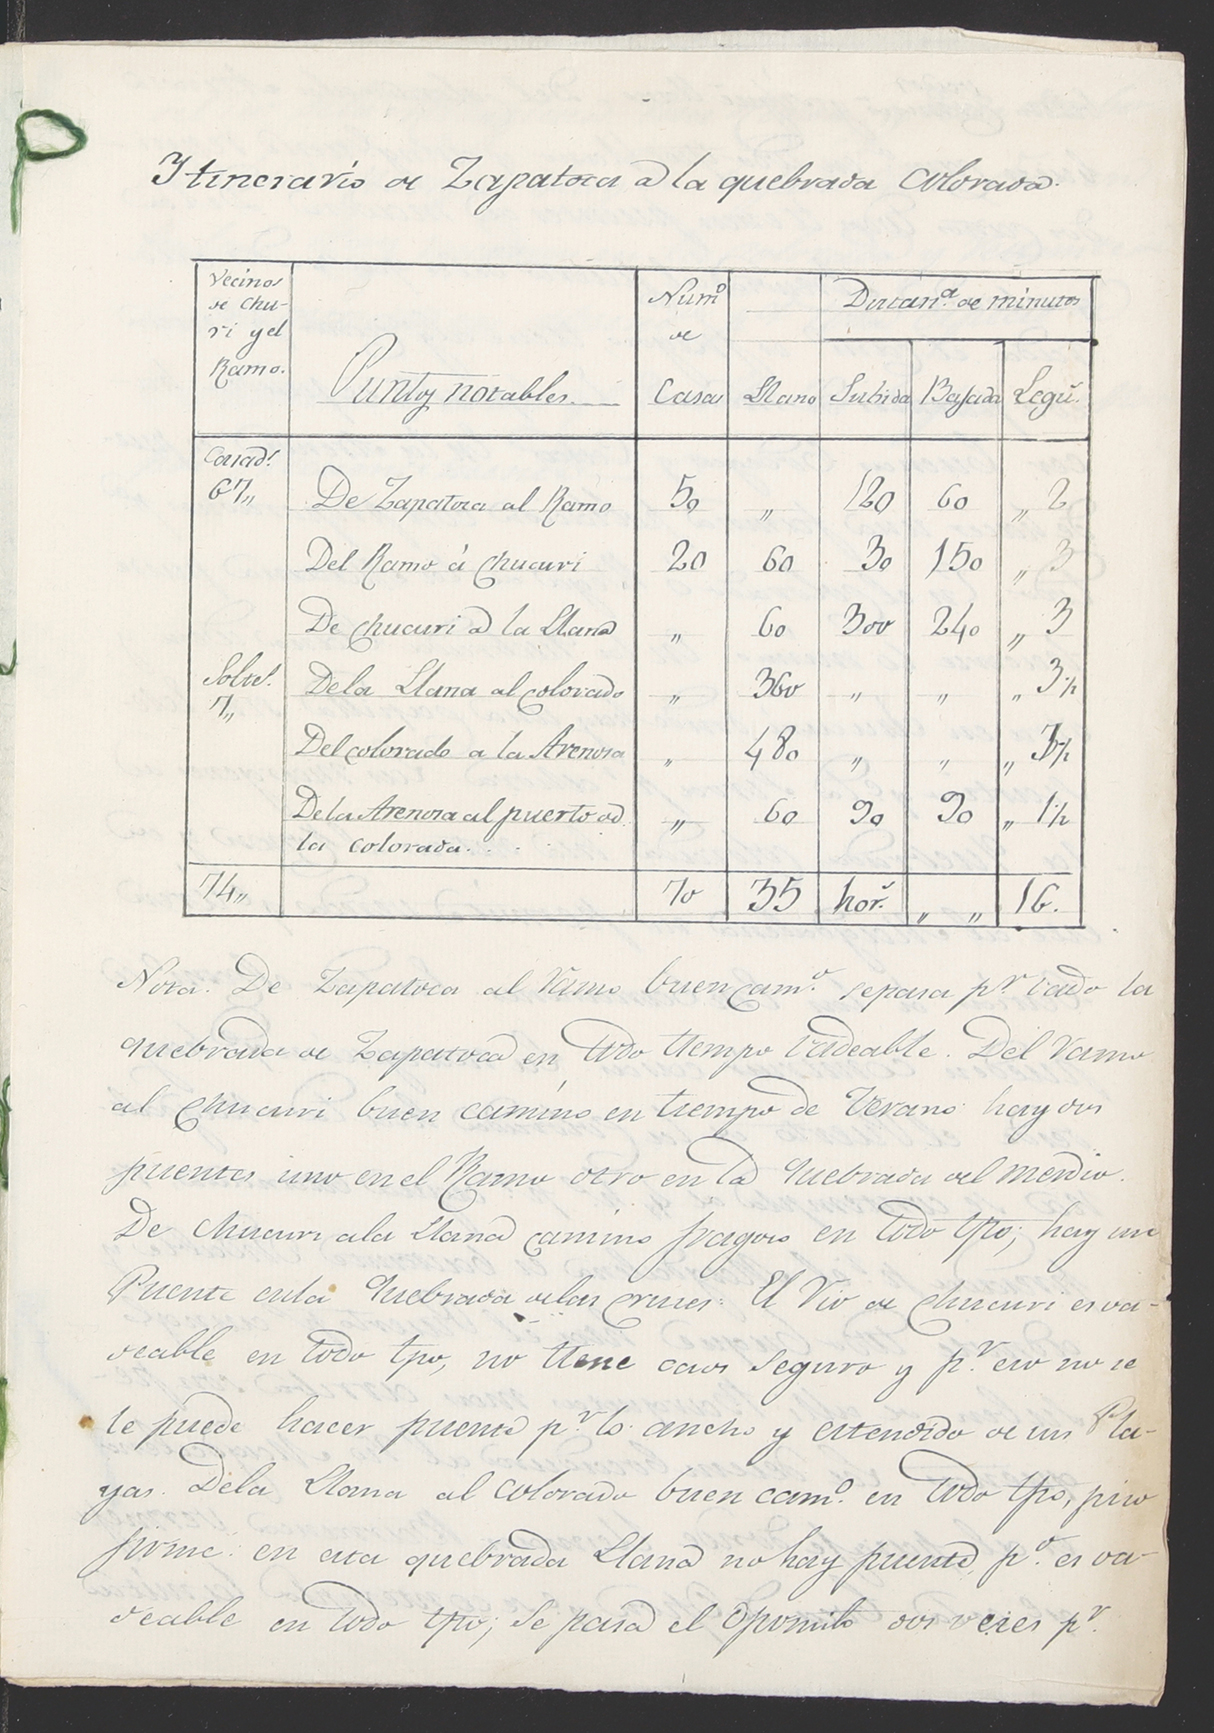 Ytinerario de Zapatoca a la quebrada colorada.
Vecinos de Chu-
ri y el
Ramo.
Puntos notables.
Num.º
de
Casas
Distan.ª de minutos
Llano Subida Bajada Legu.s
Casad.s
67,, De Zapatoca al Ramo 50 ,, 120 60 ,, 2
Del Ramo á Chucuri 20 60 30 150 ,, 3
De chucuri a la Llana ,, 60 300 240 ,, 3
Solte.s
7,, De la Llana al colorado ,, 360 ,, ,, ,, 3½
Del colorado a la Arenosa ,, 480 ,, ,, ,, 3½
De la Arenosa al puerto de
la colorada. . . . ,, 60 90 90 ,, 1½
74,, 70 35 hor.s ,, ,, 16.
Nota. De Zapatoca al Ramo buen cam.º se pasa p.r vado la
quebrada de Zapatoca en todo tiempo vadeable. Del Ramo
al Chucuri buen camino en tiempo de Verano hay dos
puentes uno en el Ramo otro en la quebrada del medio.
De Chucuri a la Llana camino fragoso en todo tpo; hay un
Puente en la quebrada de las cruces. El Rio de Chucuri es va-
deable en todo tpo, no tiene caos seguro y p.r eso no se
le puede hacer puente p.r lo ancho y estendido de sus Pla-
yas. De la Llana al colorado buen cam.º en todo tpo, piso
firme: en esta quebrada Llana no hay puente, p.º es va-
deable en todo tpo; se pasa el Oponcito dos veces p.r